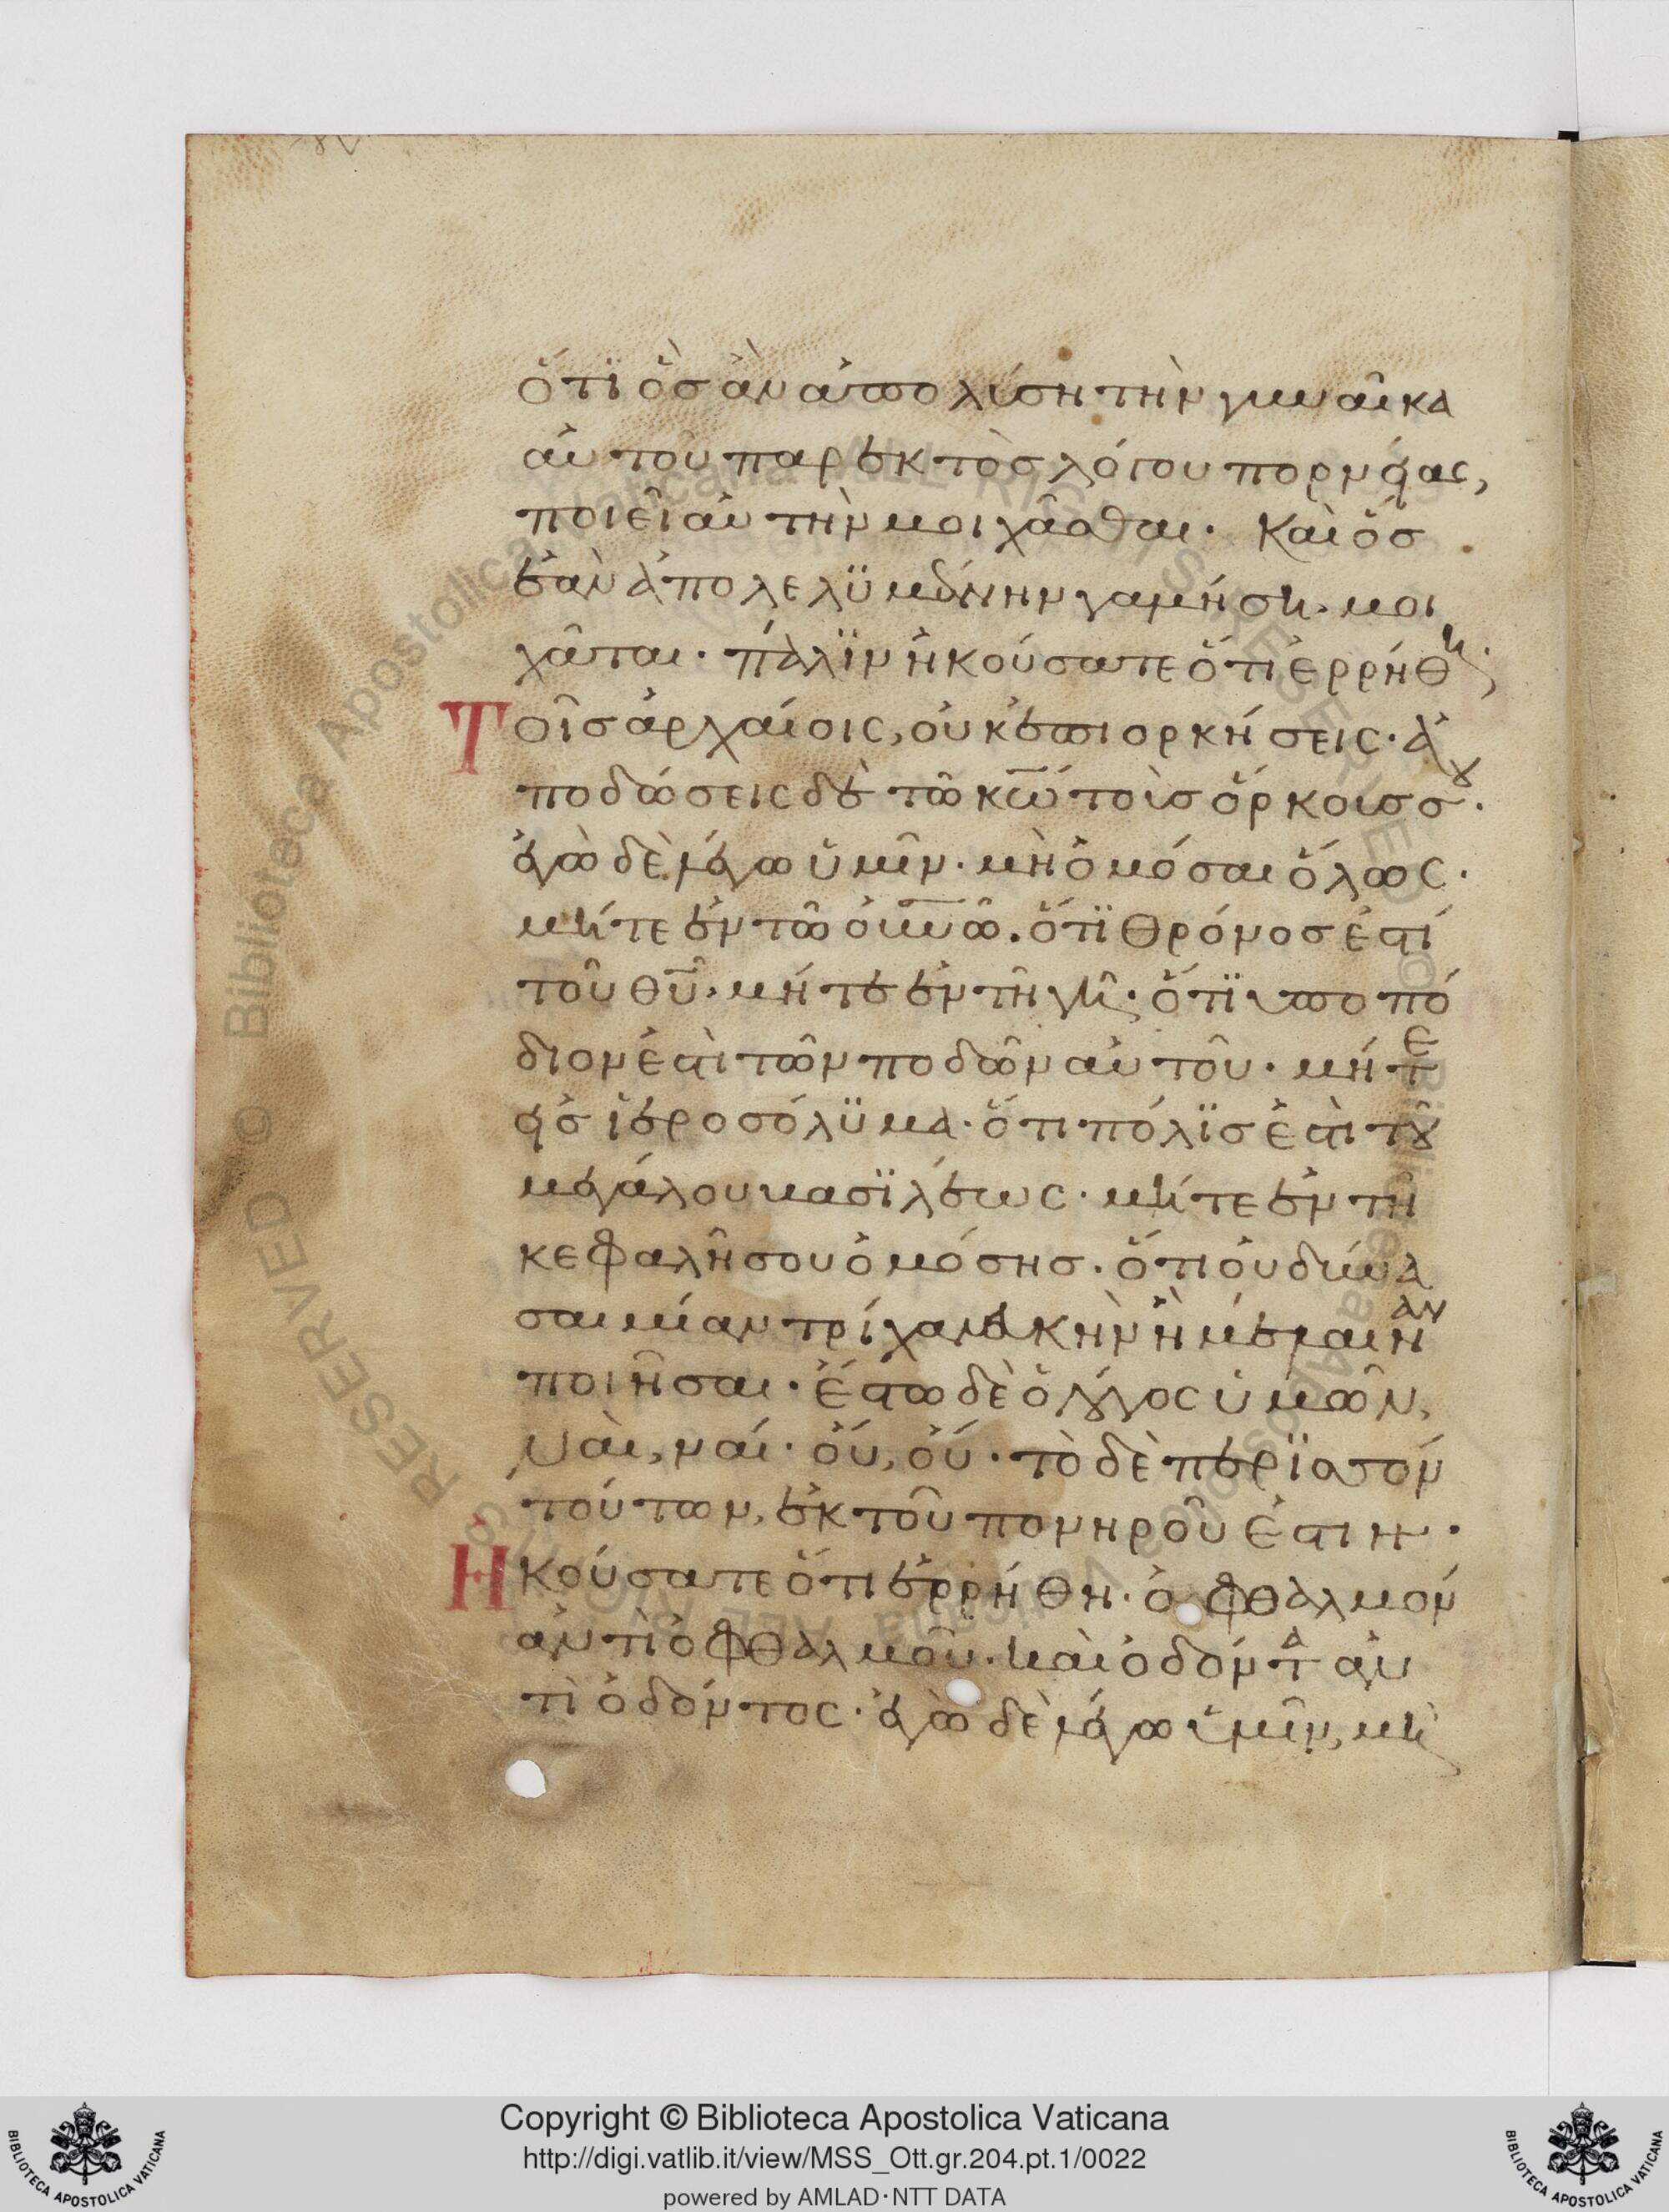 ὅτϊ ὃσ ἂν ἀπολύση τὴν γυναῖκα
αὐτοῦ παρεκτὸσ λόγου πορνείας,
ποιεῖ αὐτὴν μοιχᾶσθαι. Καὶ ὅσ
ἐὰν ἀπολελϋμένην γαμήση. μοι
χᾶται. πάλϊν ἠκούσατε ὅτι ἐρρήθη.
Τοῖσ ἀρχαίοις, οὐκ ἐπιορκήσεις. ἀ
ποδώσεις δὲ τῶ κ̅ω̅ τοὺσ ὅρκουσ σου.
ἐγὼ δὲ λέγω ὑμῖν. μὴ ὀμόσαι ὅλως.
μήτε ἐν τῶ ο̅υ̅ν̅ῶ. ὅτϊ θρόνοσ ἐστί
τοῦ θ̅υ̅. μήτε ἐν τῆ γῆ. ὅτϊ ὑποπό
διον ἐστὶ τῶν ποδῶν αὐτοῦ. μήτε
εἰσ ἱεροσόλϋμα. ὅτι πόλϊσ ἐστὶ τοῦ
μεγάλου βασϊλέως. μήτε ἐν τῆ
κεφαλῆ σου ὀμόσησ. ὅτι οὐ δύνα
σαι μίαν τρίχα λευκὴν ἢ μέλαιναν
ποιῆσαι. ἔστω δὲ ὁ λόγος ὑμῶν,
ναὶ, ναί. οὔ, οὔ. τὸ δὲ περϊσσόν
τούτων, ἐκ τοῦ πονηροῦ ἐστιν.
Ἠκούσατε ὅτι ἐρρήθη. ὀφθαλμόν
ἀντὶ ὀφθαλμοῦ. καὶ ὀδόντα ἀν
τὶ ὀδόντος. ἐγὼ δὲ λέγω ὑμῖν, μὴ
Copyright © Biblioteca Apostolica Vaticana
http://digi.vatlib.it/view/MSS_Ott.gr.204.pt.1/0022
powered by AMLAD·NTT DATA